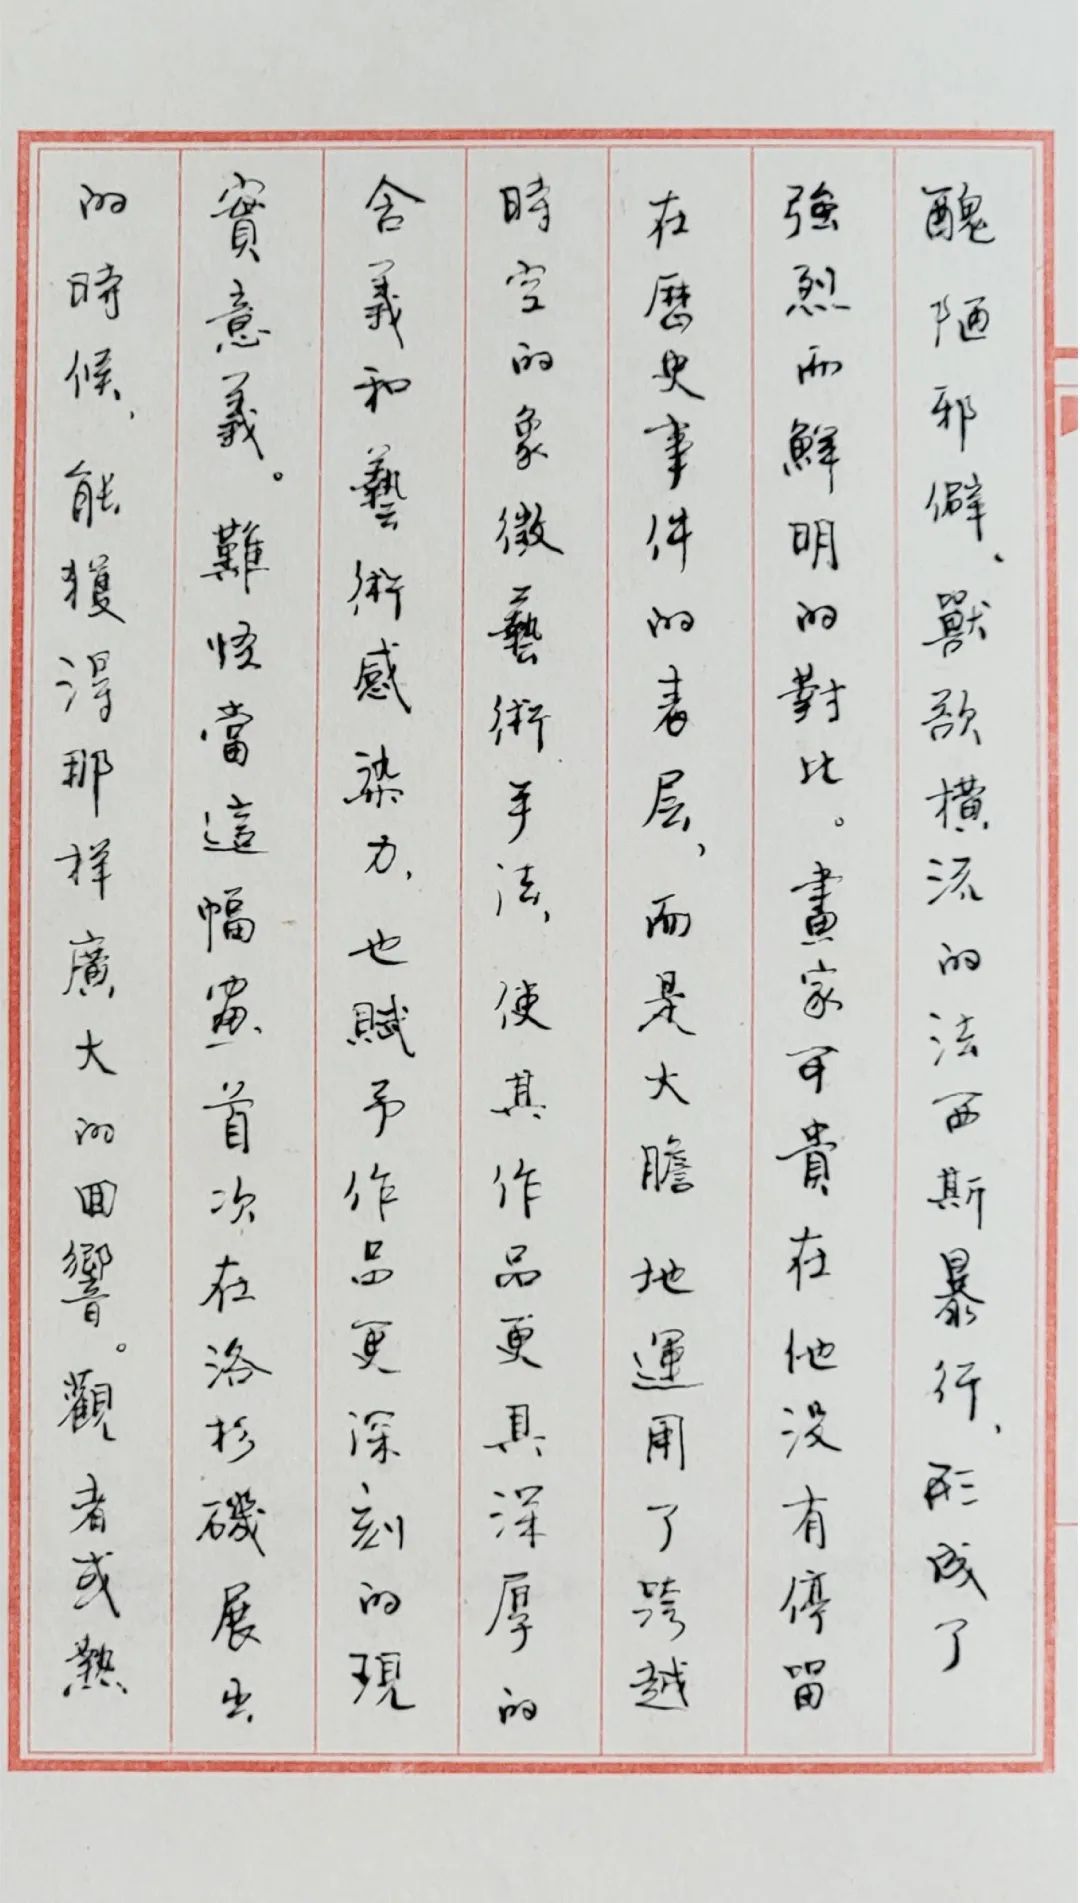 醜陋邪僻、獸欲橫流的法西斯暴行，形成了
強烈而鮮明的對比。畫家可貴在他没有停留
在歷史事件的表层，而是大膽地運用了跨越
時空的象徵藝術手法，使其作品更具深厚的
含義和藝術感染力，也賦予作品更深刻的現
實意義。難怪當這幅畫首次在洛杉磯展出
的時候，能獲得那样廣大的回響。觀者或熱